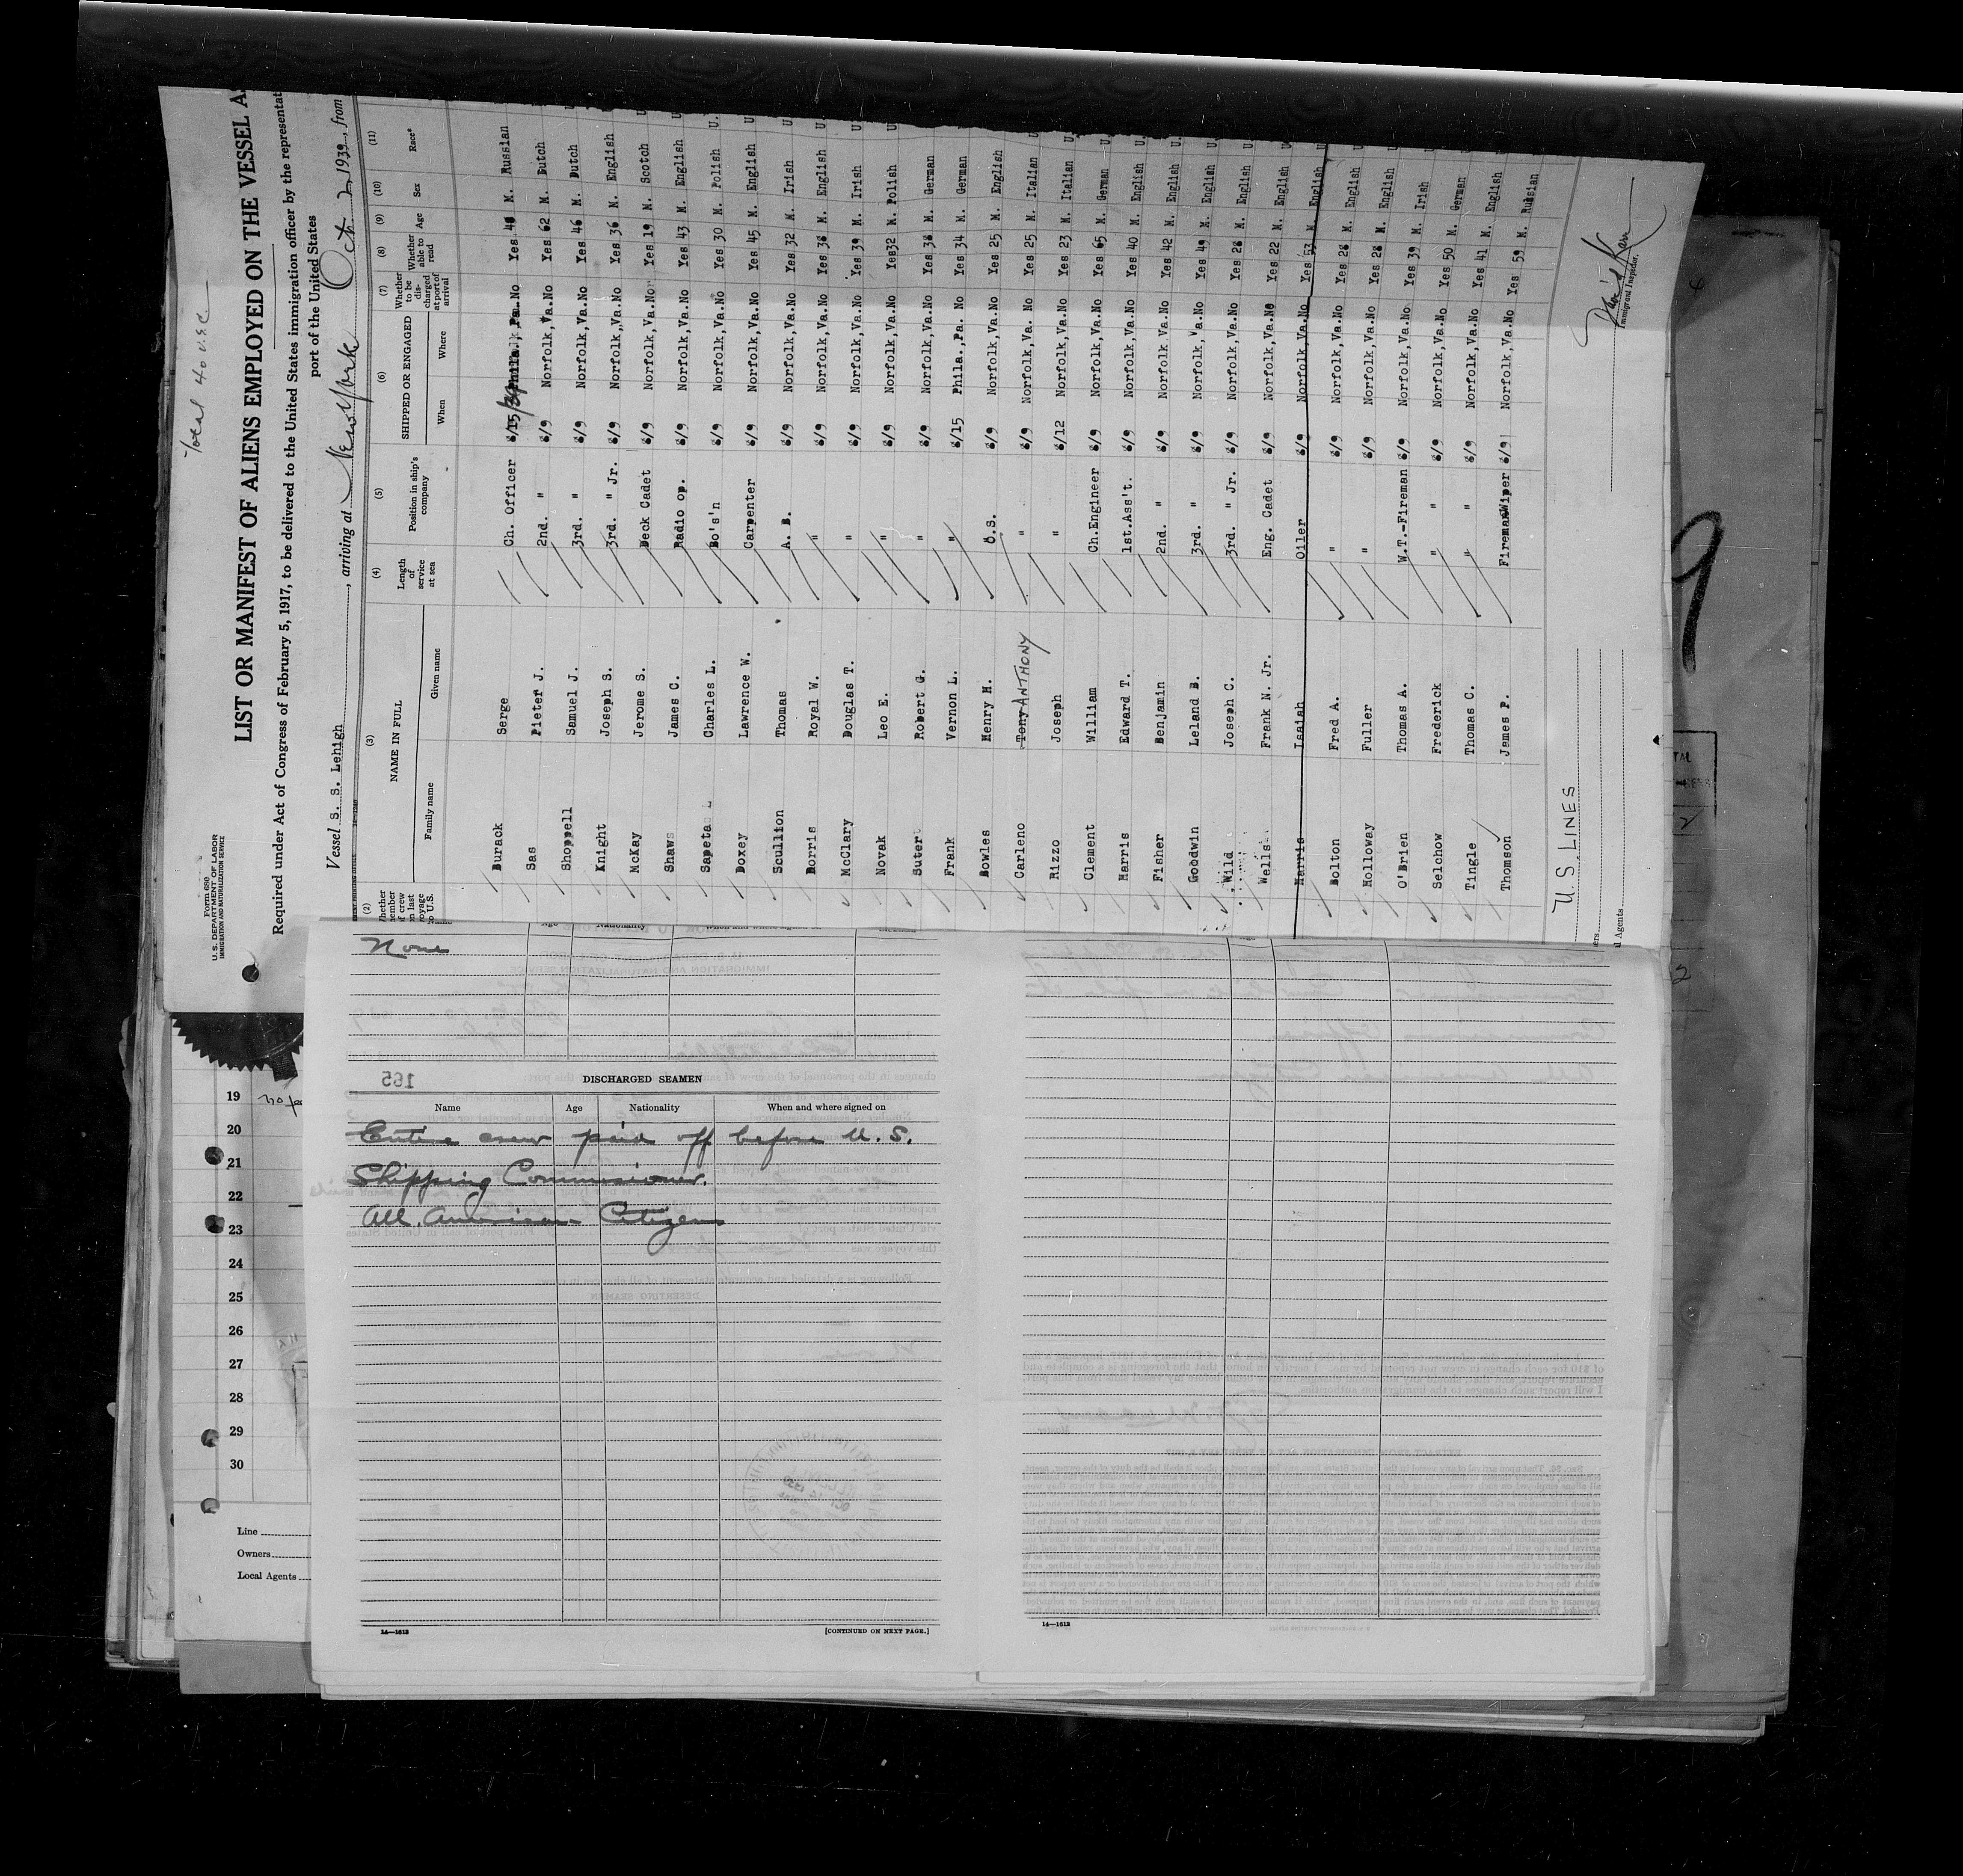 Total 40 U.S.C.
Form 680
U. S. DEPARTMENT OF LABOR
IMMIGRATION AND NATURALIZATION SERVICE
LIST OR MANIFEST OF ALIENS EMPLOYED ON THE VESSEL A
Required under Act of Congress of February 5, 1917, to be delivered to the United States immigration officer by the representat
port of the United States
Vessel S. S. Lehigh, arriving at New York Oct 2 1939, from
(2) (3) (4) (5) (6) (7) (8) (9) (10) (11)
NAME IN FULL
Family name Given name
Length of service at sea
Position in ship's company
SHIPPED OR ENGAGED
When Where
Whether to be discharged at port of arrival
Whether able to read
Age Sex Race*
Burack Serge Ch. Officer 8/15/39 Phila., Pa. No Yes M. Russian
Sas Pieter J. 2nd. " 8/9 Norfolk, Va. No Yes 62 M. Dutch
Shoppell Samuel J. 3rd. " 8/9 Norfolk, Va. No Yes 46 M. Dutch
Knight Joseph S. 3rd. " Jr. 8/9 Norfolk, Va. No Yes 36 M. English
McKay Jerome S. Deck Cadet 8/9 Norfolk, Va. No Yes 19 M. Scotch
Shaws James C. Radio Op. 8/9 Norfolk, Va. No Yes 43 M. English
Sapeta Charles L. Bo's'n 8/9 Norfolk, Va. No Yes 30 M. Polish
Doxey Lawrence W. Carpenter 8/9 Norfolk, Va. No Yes 45 M. English
Scullion Thomas A. B. 8/9 Norfolk, Va. No Yes 32 M. Irish
Dorris Royal W. " 8/9 Norfolk, Va. No Yes 38 M. English
McClary Douglas T. " 8/9 Norfolk, Va. No Yes 39 M. Irish
Novak Leo E. " 8/9 Norfolk, Va. No Yes 32 M. Polish
Suter Robert G. " 8/9 Norfolk, Va. No Yes 38 M. German
Frank Vernon L. " 8/15 Phila., Pa. No Yes 34 M. German
Bowles Henry H. O.S. 8/9 Norfolk, Va. No Yes 25 M. English
Carleno Tony ANTHONY " 8/9 Norfolk, Va. No Yes 25 M. Italian
Rizzo Joseph " 8/12 Norfolk, Va. No Yes 23 M. Italian
Clement William Ch. Engineer 8/9 Norfolk, Va. No Yes 65 M. German
Harris Edward T. 1st. Ass't. 8/9 Norfolk, Va. No Yes 40 M. English
Fisher Benjamin 2nd. " 8/9 Norfolk Va. No Yes 42 M. English
Goodwin Leland B. 3rd. " 8/9 Norfolk, Va. No Yes 49 M. English
Wild Joseph C. 3rd. " Jr. 8/9 Norfolk, Va. No Yes 28 M. English
Wells Frank N. Jr. Eng. Cadet 8/9 Norfolk, Va. No Yes 22 M. English
Harris Isaiah Oiler 8/9 Norfolk, Va. No Yes 53 M. English
Bolton Fred A. " 8/9 Norfolk, Va. No Yes 28 M. English
Holloway Fuller " 8/9 Norfolk, Va. No Yes 28 M. English
O'Brien Thomas A. W.T.-Fireman 8/9 Norfolk, Va. No Yes 39 M. Irish
Selchow Frederick " 8/9 Norfolk, Va. No Yes 50 M. German
Tingle Thomas C. " 8/9 Norfolk, Va. No Yes 41 M. English
Thomson James P. Fireman Wiper 8/9 Norfolk, Va. No Yes 59 M. Russian
U.S. LINES
l Agents
Immigrant Inspector.
9
None
165
DISCHARGED SEAMEN
Name Age Nationality When and where signed on
Entire crew paid off before U.S.
Shipping Commissioner.
All American Citizens
14—1613
[CONTINUED ON NEXT PAGE.]
14—1613
19
20
21
22
23
24
25
26
27
28
29
30
Line
Owners
Local Agents